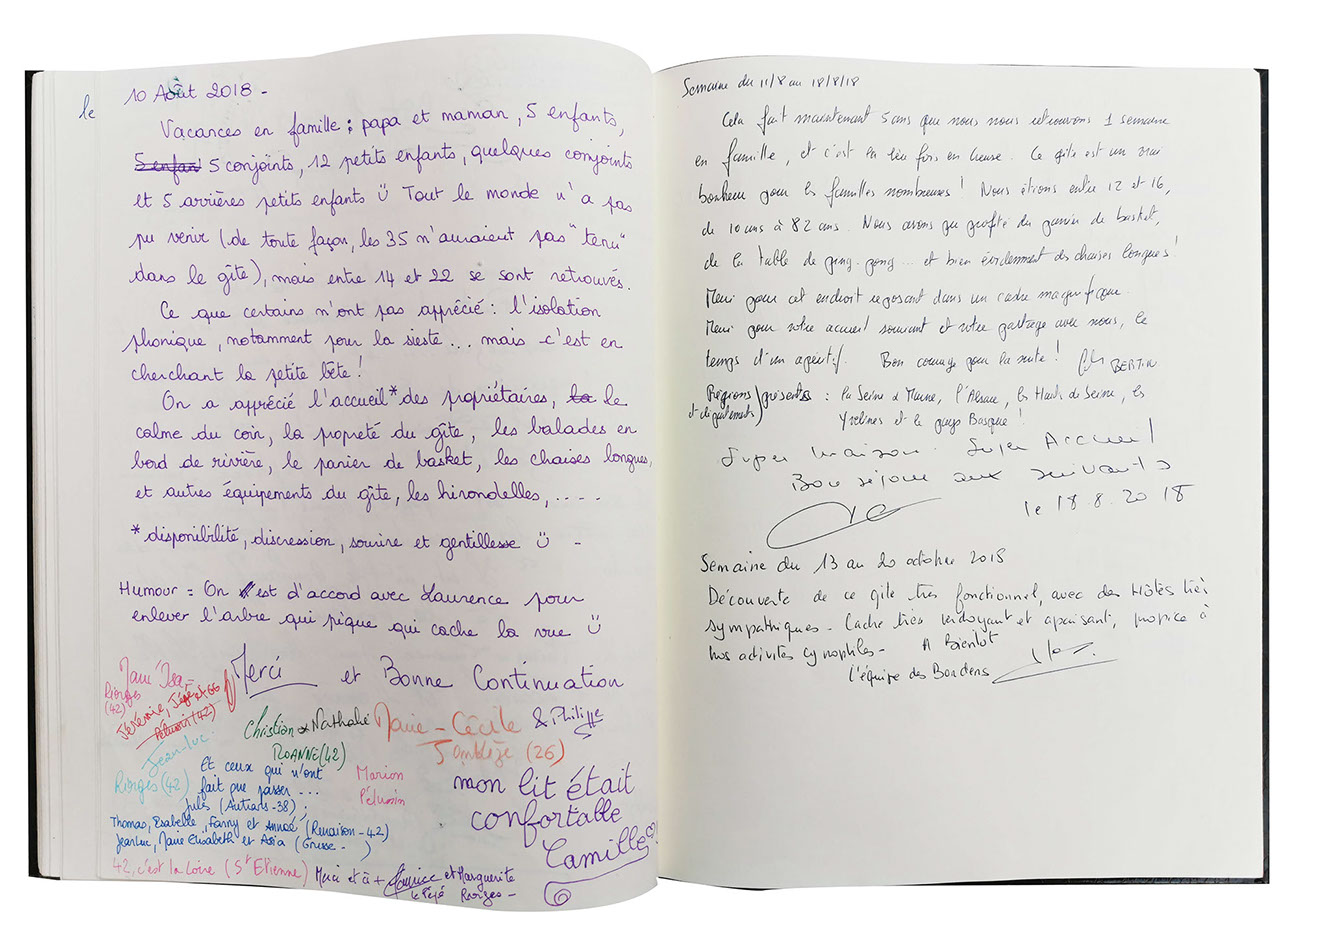 le 10 Août 2018 -
Vacances en famille : papa et maman, 5 enfants,
5 enfan 5 conjoints, 12 petits enfants, quelques conjoints
et 5 arrières petits enfants Tout le monde n'a pas
pu venir (de toute façon, les 35 n'auraient pas "tenu"
dans le gîte), mais entre 14 et 22 se sont retrouvés.
Ce que certains n'ont pas apprécié : l'isolation
phonique, notamment pour la sieste... mais c'est en
cherchant la petite bête !
On a apprécié l'accueil* des propriétaires, la le
calme du coin, la propreté du gîte, les balades en
bord de rivière, le panier de basket, les chaises longues,
et autres équipements du gîte, les hirondelles, ....
*disponibilité, discression, sourire et gentillesse -
Humour = On est d'accord avec Laurence pour
enlever l'arbre qui pique qui cache la vue
Merci et Bonne Continuation
Marie Isa
Riorges
(42)
Jérémie,
Pélussin (42)
Christian & Nathalie
ROANNE (42)
Marie-Cécile & Philippe
(26)
Jean-Luc
Riorges (42)
Et ceux qui n'ont
fait que passer ...
Jules (Autrans-38),
Thomas, Isabelle, Fanny et (Renaison-42)
JeanLuc, Marie Elisabeth et Asia
Marion
Pélussin
mon lit était
confortable
Camille
42, c'est la Loire (St Etienne)
Merci et à + Maurice et Marguerite
le Pépé Riorges -
Semaine du 11/8 au 18/8/18
Cela fait maintenant 5 ans que nous nous retrouvons 1 semaine
en famille, et c'est la 1ère fois en Creuse. Ce gîte est un vrai
bonheur pour les familles nombreuses ! Nous étions entre 12 et 16,
de 10 ans à 82 ans. Nous avons pu profité du panier de basket,
de la table de ping-pong... et bien évidemment des chaises longues !
Merci pour cet endroit reposant dans un cadre magnifique.
Merci pour votre accueil souriant et votre partage avec nous, le
temps d'un apéritif. Bon courage pour la suite ! BERTIN
Régions et départements) présents : la Seine et Marne, l'Alsace, les Hauts de Seine, les
Yvelines et le pays Basque !
Super maison. Super Accueil
Bon séjour aux suivants
le 18.8.2018
Semaine du 13 au 20 octobre 2018
Découverte de ce gîte très fonctionnel, avec des Hôtes très
sympathiques - Cadre très verdoyant et apaisant, propice à
nos activités cynophiles - A Bientôt
l'équipe des Borders